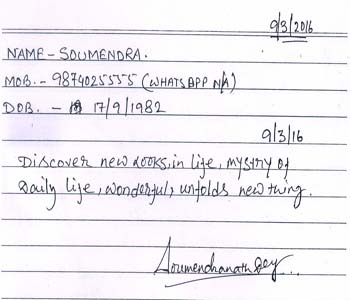 9/3/2016
NAME - SOUMENDRA.
MOB. - 9874025555 (WHATSAPP N/A)
DOB. - 17/9/1982
9/3/16
Discover new looks, in life, mystry of
Daily life, wonderful, unfolds new thing.
Soumendranath Dey